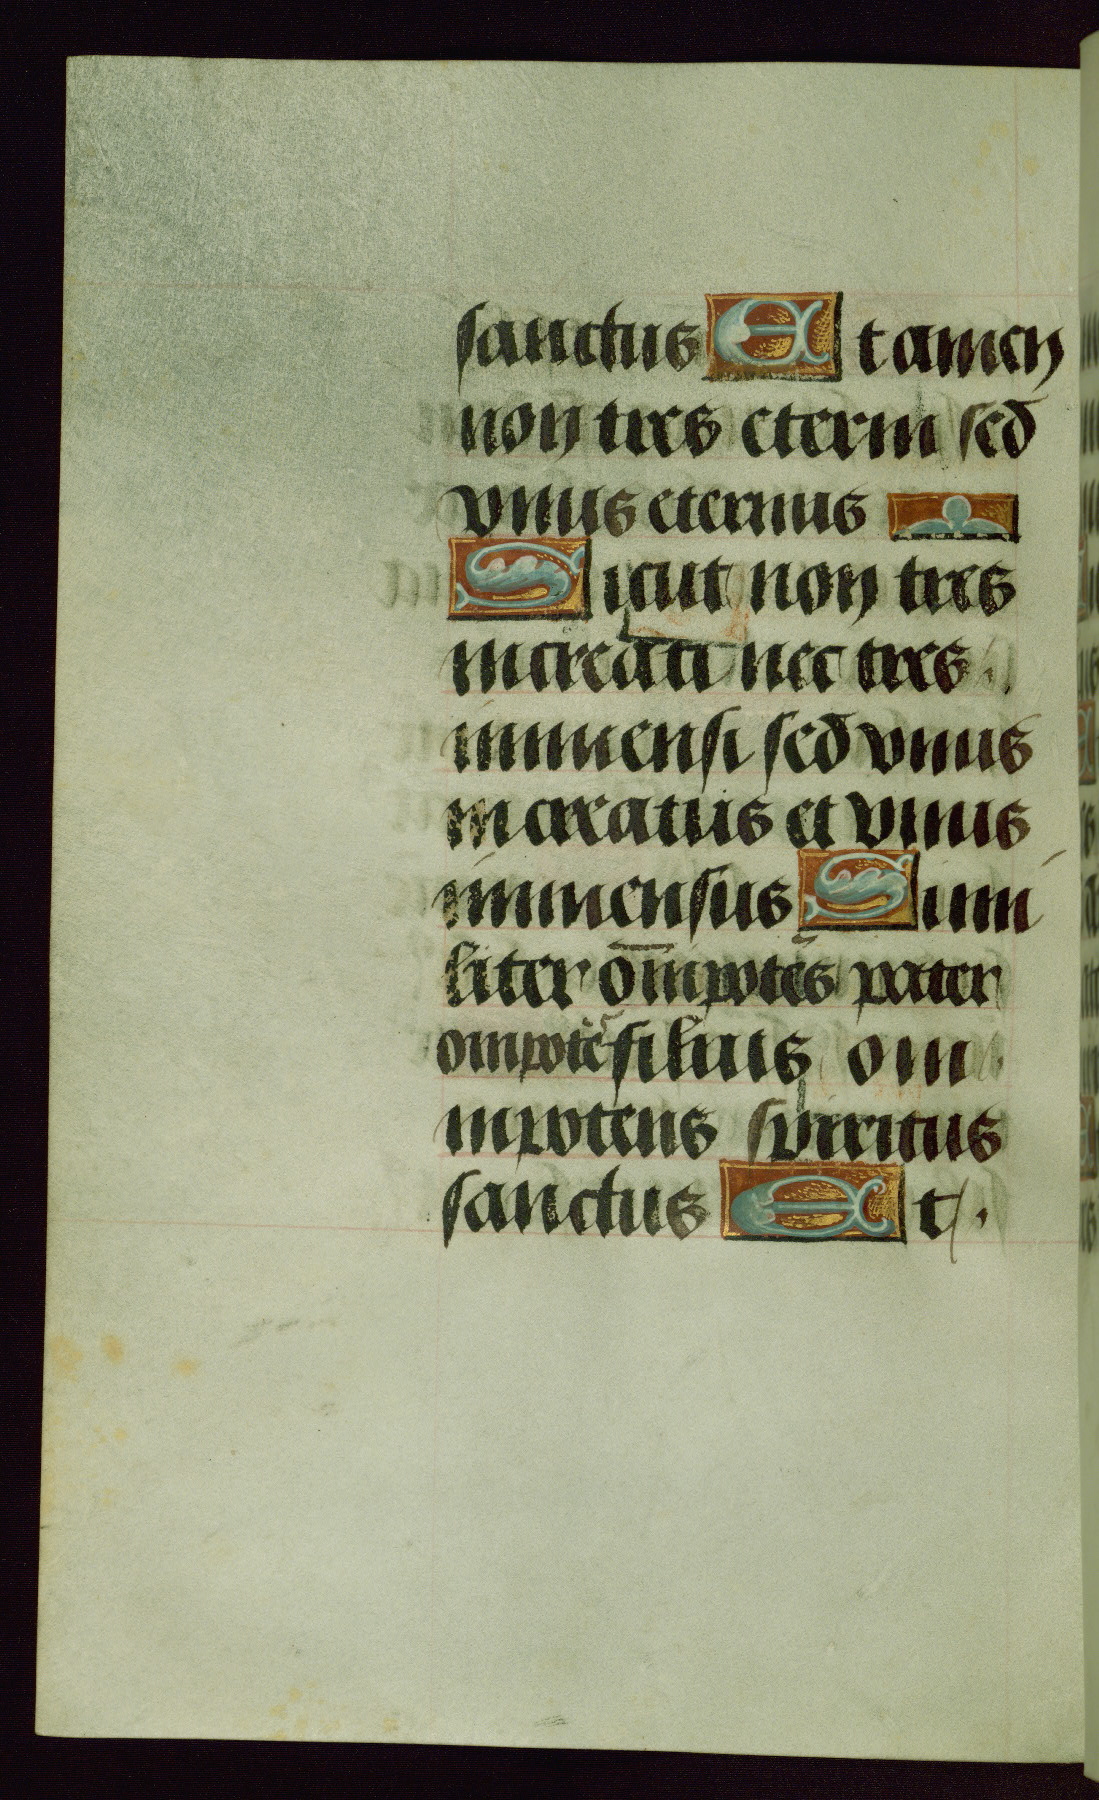 sanctus Et tamen
non tres eterni sed
vnus eternus
Sicut non tres
increati nec tres
immensi sed vnus
increatus et vnus
immensus Simi
liter om̅ipotēs pater
omipotēs filius om
nipotens spiritus
sanctus Et